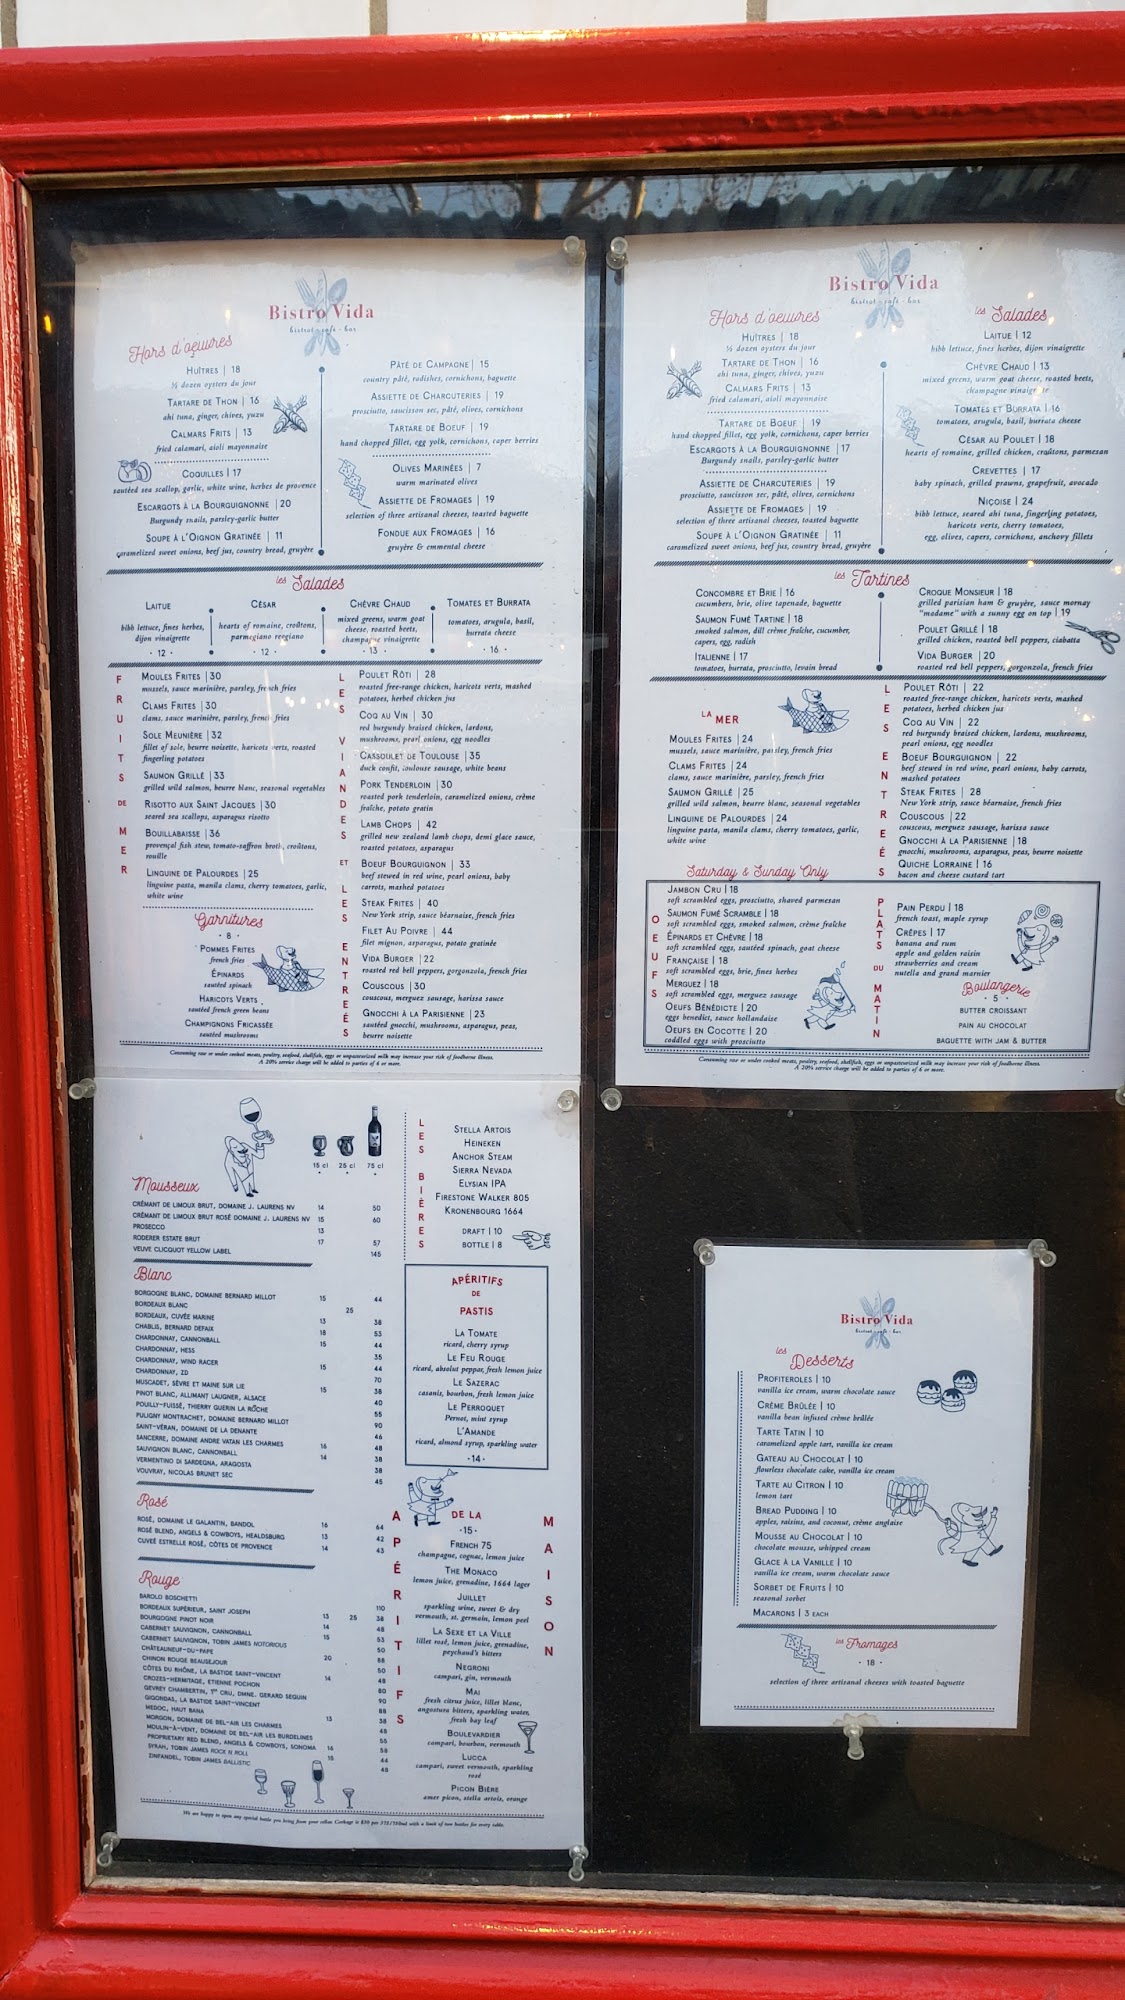 Bistro Vida
bistrot · café · bar
Hors d'oeuvres
HUÎTRES | 18
½ dozen oysters du jour
TARTARE DE THON | 16
ahi tuna, ginger, chives, yuzu
CALMARS FRITS | 13
fried calamari, aioli mayonnaise
COQUILLES | 17
sautéed sea scallop, garlic, white wine, herbes de provence
ESCARGOTS À LA BOURGUIGNONNE | 20
Burgundy snails, parsley-garlic butter
SOUPE À L'OIGNON GRATINÉE | 11
caramelized sweet onions, beef jus, country bread, gruyère
PÂTÉ DE CAMPAGNE | 15
country pâté, radishes, cornichons, baguette
ASSIETTE DE CHARCUTERIES | 19
prosciutto, saucisson sec, pâté, olives, cornichons
TARTARE DE BOEUF | 19
hand chopped fillet, egg yolk, cornichons, caper berries
OLIVES MARINÉES | 7
warm marinated olives
ASSIETTE DE FROMAGES | 19
selection of three artisanal cheeses, toasted baguette
FONDUE AUX FROMAGES | 16
gruyère & emmental cheese
les Salades
LAITUE
bibb lettuce, fines herbes,
dijon vinaigrette
· 12 ·
CÉSAR
hearts of romaine, croûtons,
parmegiano reggiano
· 12 ·
CHÈVRE CHAUD
mixed greens, warm goat
cheese, roasted beets,
champagne vinaigrette
· 13 ·
TOMATES ET BURRATA
tomatoes, arugula, basil,
burrata cheese
· 16 ·
FRUITS DE MER
MOULES FRITES | 30
mussels, sauce marinière, parsley, french fries
CLAMS FRITES | 30
clams, sauce marinière, parsley, french fries
SOLE MEUNIÈRE | 32
fillet of sole, beurre noisette, haricots verts, roasted
fingerling potatoes
SAUMON GRILLÉ | 33
grilled wild salmon, beurre blanc, seasonal vegetables
RISOTTO AUX SAINT JACQUES | 30
seared sea scallops, asparagus risotto
BOUILLABAISSE | 36
provençal fish stew, tomato-saffron broth, croûtons,
rouille
LINGUINE DE PALOURDES | 25
linguine pasta, manila clams, cherry tomatoes, garlic,
white wine
Garnitures
· 8 ·
POMMES FRITES
french fries
ÉPINARDS
sautéed spinach
HARICOTS VERTS
sautéed french green beans
CHAMPIGNONS FRICASSÉE
sautéed mushrooms
LES VIANDES ET LES ENTREÉS
POULET RÔTI | 28
roasted free-range chicken, haricots verts, mashed
potatoes, herbed chicken jus
COQ AU VIN | 30
red burgundy braised chicken, lardons,
mushrooms, pearl onions, egg noodles
CASSOULET DE TOULOUSE | 35
duck confit, toulouse sausage, white beans
PORK TENDERLOIN | 30
roasted pork tenderloin, caramelized onions, crème
fraîche, potato gratin
LAMB CHOPS | 42
grilled new zealand lamb chops, demi glace sauce,
roasted potatoes, asparagus
BOEUF BOURGUIGNON | 33
beef stewed in red wine, pearl onions, baby
carrots, mashed potatoes
STEAK FRITES | 40
New York strip, sauce béarnaise, french fries
FILET AU POIVRE | 44
filet mignon, asparagus, potato gratinée
VIDA BURGER | 22
roasted red bell peppers, gorgonzola, french fries
COUSCOUS | 30
couscous, merguez sausage, harissa sauce
GNOCCHI À LA PARISIENNE | 23
sautéed gnocchi, mushrooms, asparagus, peas,
beurre noisette
Consuming raw or under cooked meats, poultry, seafood, shellfish, eggs or unpasteurized milk may increase your risk of foodborne illness.
A 20% service charge will be added to parties of 6 or more.
Bistro Vida
bistrot · café · bar
Hors d'oeuvres
HUÎTRES | 18
½ dozen oysters du jour
TARTARE DE THON | 16
ahi tuna, ginger, chives, yuzu
CALMARS FRITS | 13
fried calamari, aioli mayonnaise
TARTARE DE BOEUF | 19
hand chopped fillet, egg yolk, cornichons, caper berries
ESCARGOTS À LA BOURGUIGNONNE | 17
Burgundy snails, parsley-garlic butter
ASSIETTE DE CHARCUTERIES | 19
prosciutto, saucisson sec, pâté, olives, cornichons
ASSIETTE DE FROMAGES | 19
selection of three artisanal cheeses, toasted baguette
SOUPE À L'OIGNON GRATINÉE | 11
caramelized sweet onions, beef jus, country bread, gruyère
les Salades
LAITUE | 12
bibb lettuce, fines herbes, dijon vinaigrette
CHÈVRE CHAUD | 13
mixed greens, warm goat cheese, roasted beets,
champagne vinaigrette
TOMATES ET BURRATA | 16
tomatoes, arugula, basil, burrata cheese
CÉSAR AU POULET | 18
hearts of romaine, grilled chicken, croûtons, parmesan
CREVETTES | 17
baby spinach, grilled prawns, grapefruit, avocado
NIÇOISE | 24
bibb lettuce, seared ahi tuna, fingerling potatoes,
haricots verts, cherry tomatoes,
egg, olives, capers, cornichons, anchovy fillets
les Tartines
CONCOMBRE ET BRIE | 16
cucumbers, brie, olive tapenade, baguette
SAUMON FUMÉ TARTINE | 18
smoked salmon, dill crème fraîche, cucumber,
capers, egg, radish
ITALIENNE | 17
tomatoes, burrata, prosciutto, levain bread
CROQUE MONSIEUR | 18
grilled parisian ham & gruyère, sauce mornay
"madame" with a sunny egg on top | 19
POULET GRILLÉ | 18
grilled chicken, roasted bell peppers, ciabatta
VIDA BURGER | 20
roasted red bell peppers, gorgonzola, french fries
LA MER
MOULES FRITES | 24
mussels, sauce marinière, parsley, french fries
CLAMS FRITES | 24
clams, sauce marinière, parsley, french fries
SAUMON GRILLÉ | 25
grilled wild salmon, beurre blanc, seasonal vegetables
LINGUINE DE PALOURDES | 24
linguine pasta, manila clams, cherry tomatoes, garlic,
white wine
LES ENTREÉS
POULET RÔTI | 22
roasted free-range chicken, haricots verts, mashed
potatoes, herbed chicken jus
COQ AU VIN | 22
red burgundy braised chicken, lardons, mushrooms,
pearl onions, egg noodles
BOEUF BOURGUIGNON | 22
beef stewed in red wine, pearl onions, baby carrots,
mashed potatoes
STEAK FRITES | 28
New York strip, sauce béarnaise, french fries
COUSCOUS | 22
couscous, merguez sausage, harissa sauce
GNOCCHI À LA PARISIENNE | 18
gnocchi, mushrooms, asparagus, peas, beurre noisette
QUICHE LORRAINE | 16
bacon and cheese custard tart
Saturday & Sunday Only
OEUFS
JAMBON CRU | 18
soft scrambled eggs, prosciutto, shaved parmesan
SAUMON FUMÉ SCRAMBLE | 18
soft scrambled eggs, smoked salmon, crème fraîche
ÉPINARDS ET CHÈVRE | 18
soft scrambled eggs, sautéed spinach, goat cheese
FRANÇAISE | 18
soft scrambled eggs, brie, fines herbes
MERGUEZ | 18
soft scrambled eggs, merguez sausage
OEUFS BÉNÉDICTE | 20
eggs benedict, sauce hollandaise
OEUFS EN COCOTTE | 20
coddled eggs with prosciutto
PLATS DU MATIN
PAIN PERDU | 18
french toast, maple syrup
CRÊPES | 17
banana and rum
apple and golden raisin
strawberries and cream
nutella and grand marnier
Boulangerie
· 5 ·
BUTTER CROISSANT
PAIN AU CHOCOLAT
BAGUETTE WITH JAM & BUTTER
Consuming raw or under cooked meats, poultry, seafood, shellfish, eggs or unpasteurized milk may increase your risk of foodborne illness.
A 20% service charge will be added to parties of 6 or more.
15 cl 25 cl 75 cl
Mousseux
CRÉMANT DE LIMOUX BRUT, DOMAINE J. LAURENS NV 14 50
CRÉMANT DE LIMOUX BRUT ROSÉ DOMAINE J. LAURENS NV 15 60
PROSECCO 13
RODERER ESTATE BRUT 17 57
VEUVE CLICQUOT YELLOW LABEL 145
Blanc
BORGOGNE BLANC, DOMAINE BERNARD MILLOT 15 44
BORDEAUX BLANC 25
BORDEAUX, CUVÉE MARINE 13 38
CHABLIS, BERNARD DEFAIX 18 53
CHARDONNAY, CANNONBALL 15 44
CHARDONNAY, HESS 35
CHARDONNAY, WIND RACER 15 44
CHARDONNAY, ZD 70
MUSCADET, SÈVRE ET MAINE SUR LIE 15 38
PINOT BLANC, ALLIMANT LAUGNER, ALSACE 40
POUILLY-FUISSÉ, THIERRY GUERIN LA ROCHE 55
PULIGNY MONTRACHET, DOMAINE BERNARD MILLOT 90
SAINT-VÉRAN, DOMAINE DE LA DENANTE 46
SANCERRE, DOMAINE ANDRE VATAN LES CHARMES 16 48
SAUVIGNON BLANC, CANNONBALL 14 38
VERMENTINO DI SARDEGNA, ARAGOSTA 38
VOUVRAY, NICOLAS BRUNET SEC 45
Rosé
ROSÉ, DOMAINE LE GALANTIN, BANDOL 16 64
ROSÉ BLEND, ANGELS & COWBOYS, HEALDSBURG 13 42
CUVEÉ ESTRELLE ROSÉ, CÔTES DE PROVENCE 14 43
Rouge
BAROLO BOSCHETTI 110
BORDEAUX SUPÉRIEUR, SAINT JOSEPH 13 25 38
BOURGOGNE PINOT NOIR 14 48
CABERNET SAUVIGNON, CANNONBALL 15 53
CABERNET SAUVIGNON, TOBIN JAMES NOTORIOUS 50
CHÂTEAUNEUF-DU-PAPE 20 68
CHINON ROUGE BEAUSEJOUR 50
CÔTES DU RHÔNE, LA BASTIDE SAINT-VINCENT 14 48
CROZES-HERMITAGE, ETIENNE POCHON 80
GEVREY CHAMBERTIN, 1ER CRU, DMNE. GERARD SEGUIN 90
GIGONDAS, LA BASTIDE SAINT-VINCENT 88
MEDOC, HAUT BANA 13 38
MORGON, DOMAINE DE BEL-AIR LES CHARMES 48
MOULIN-À-VENT, DOMAINE DE BEL-AIR LES BURDELINES 55
PROPRIETARY RED BLEND, ANGELS & COWBOYS, SONOMA 16 58
SYRAH, TOBIN JAMES ROCK N ROLL 15 44
ZINFANDEL, TOBIN JAMES BALLISTIC 48
LES BIÈRES
STELLA ARTOIS
HEINEKEN
ANCHOR STEAM
SIERRA NEVADA
ELYSIAN IPA
FIRESTONE WALKER 805
KRONENBOURG 1664
DRAFT | 10
BOTTLE | 8
APÉRITIFS
DE
PASTIS
LA TOMATE
ricard, cherry syrup
LE FEU ROUGE
ricard, absolut peppar, fresh lemon juice
LE SAZERAC
casanis, bourbon, fresh lemon juice
LE PERROQUET
Pernot, mint syrup
L'AMANDE
ricard, almond syrup, sparkling water
· 14 ·
APÉRITIFS
DE LA
MAISON
· 15 ·
FRENCH 75
champagne, cognac, lemon juice
THE MONACO
lemon juice, grenadine, 1664 lager
JUILLET
sparkling wine, sweet & dry
vermouth, st. germain, lemon peel
LA SEXE ET LA VILLE
lillet rosé, lemon juice, grenadine,
peychaud's bitters
NEGRONI
campari, gin, vermouth
MAI
fresh citrus juice, lillet blanc,
angostura bitters, sparkling water,
fresh bay leaf
BOULEVARDIER
campari, bourbon, vermouth
LUCCA
campari, sweet vermouth, sparkling
rosé
PICON BIÈRE
amer picon, stella artois, orange
We are happy to open any special bottle you bring from your cellar. Corkage is
with a limit of two bottles for every table.
Bistro Vida
bistrot · café · bar
les Desserts
PROFITEROLES | 10
vanilla ice cream, warm chocolate sauce
CRÈME BRÛLÉE | 10
vanilla bean infused crème brûlée
TARTE TATIN | 10
caramelized apple tart, vanilla ice cream
GATEAU AU CHOCOLAT | 10
flourless chocolate cake, vanilla ice cream
TARTE AU CITRON | 10
lemon tart
BREAD PUDDING | 10
apples, raisins, and coconut, crème anglaise
MOUSSE AU CHOCOLAT | 10
chocolate mousse, whipped cream
GLACE À LA VANILLE | 10
vanilla ice cream, warm chocolate sauce
SORBET DE FRUITS | 10
seasonal sorbet
MACARONS | 3 EACH
les Fromages
· 18 ·
selection of three artisanal cheeses with toasted baguette